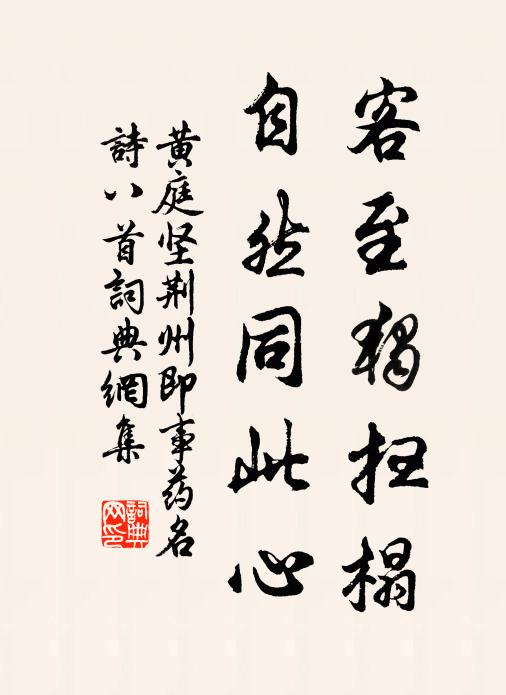 客至獨扫榻
自然同此心
黄庭坚荆州即事药名
詩八首詞典網集
詞典网印